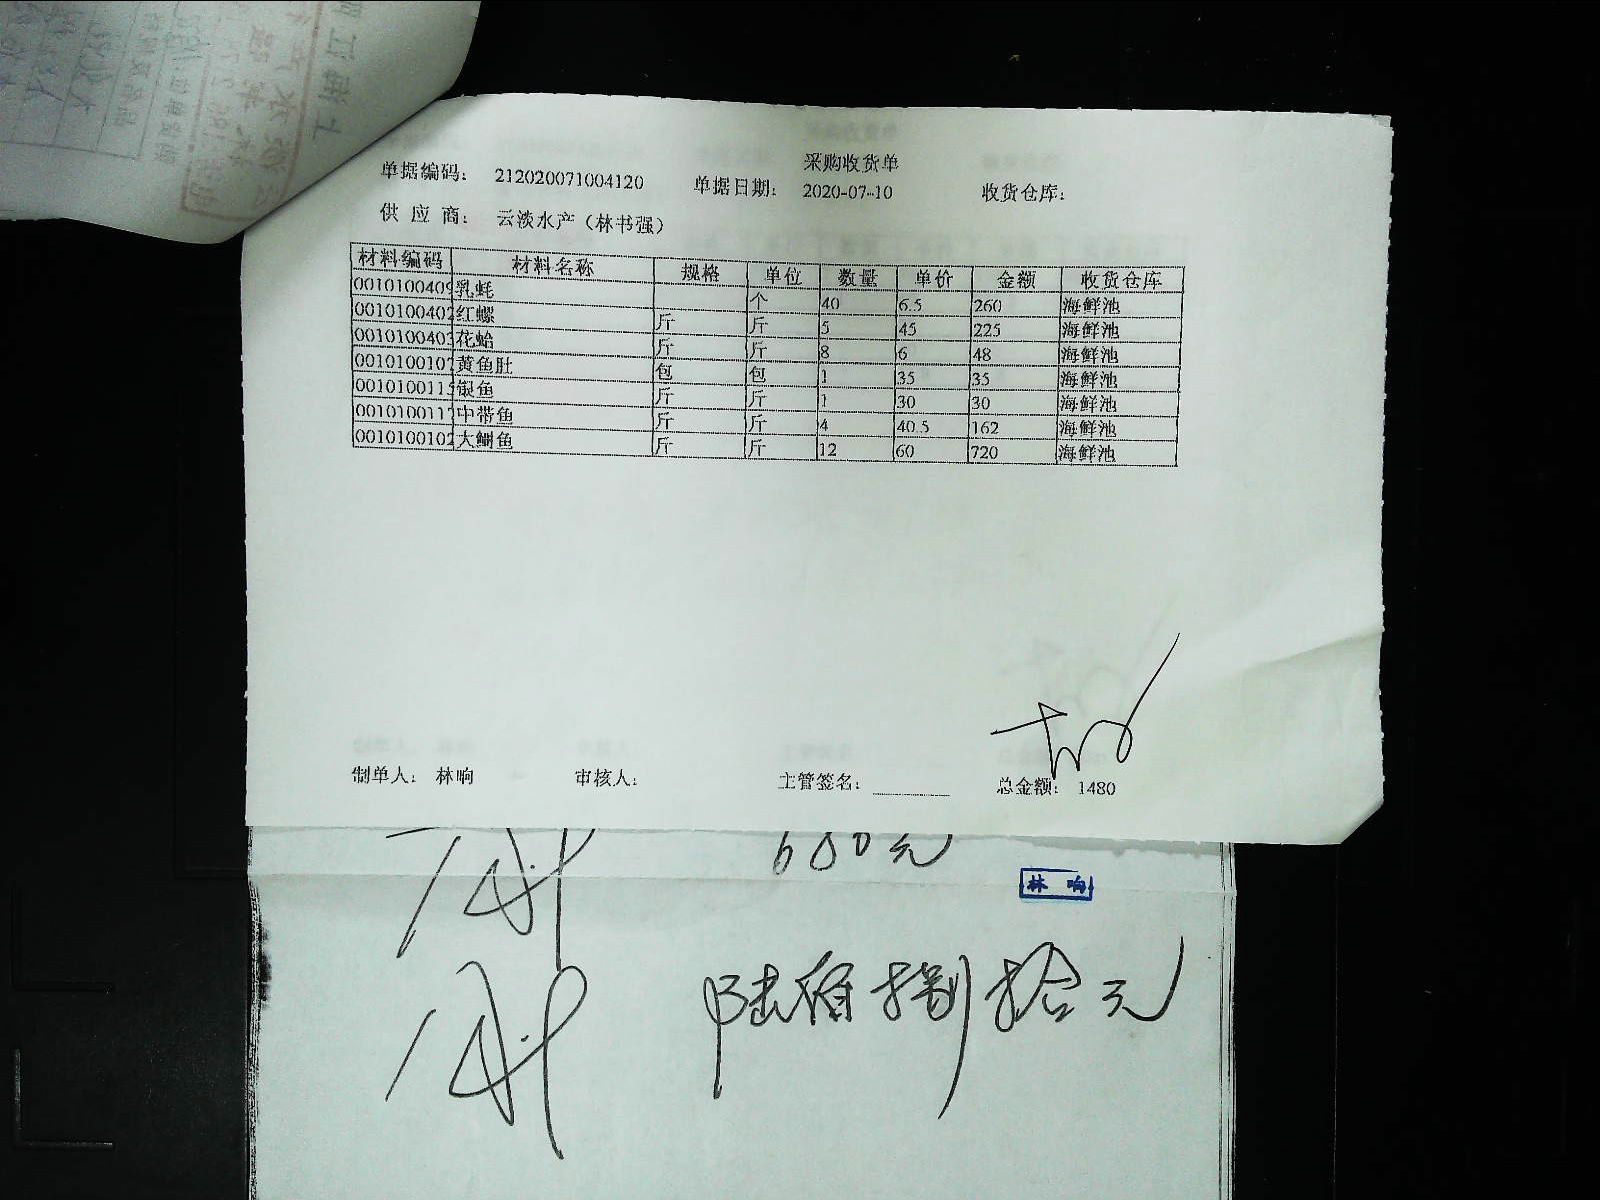 采购收货单
单据编码： 212020071004120 单据日期： 2020-07-10 收货仓库：
供 应 商： 云淡水产（林书强）
材料编码 材料名称 规格 单位 数量 单价 金额 收货仓库
0010100409 乳蚝 个 40 6.5 260 海鲜池
0010100402 红螺 斤 斤 5 45 225 海鲜池
0010100403 花蛤 斤 斤 8 6 48 海鲜池
0010100107 黄鱼肚 包 包 1 35 35 海鲜池
0010100115 银鱼 斤 斤 1 30 30 海鲜池
0010100117 中带鱼 斤 斤 4 40.5 162 海鲜池
0010100102 大鮰鱼 斤 斤 12 60 720 海鲜池
制单人： 林响 审核人： 主管签名： 总金额： 1480
680元
林 响
陆佰捌拾元